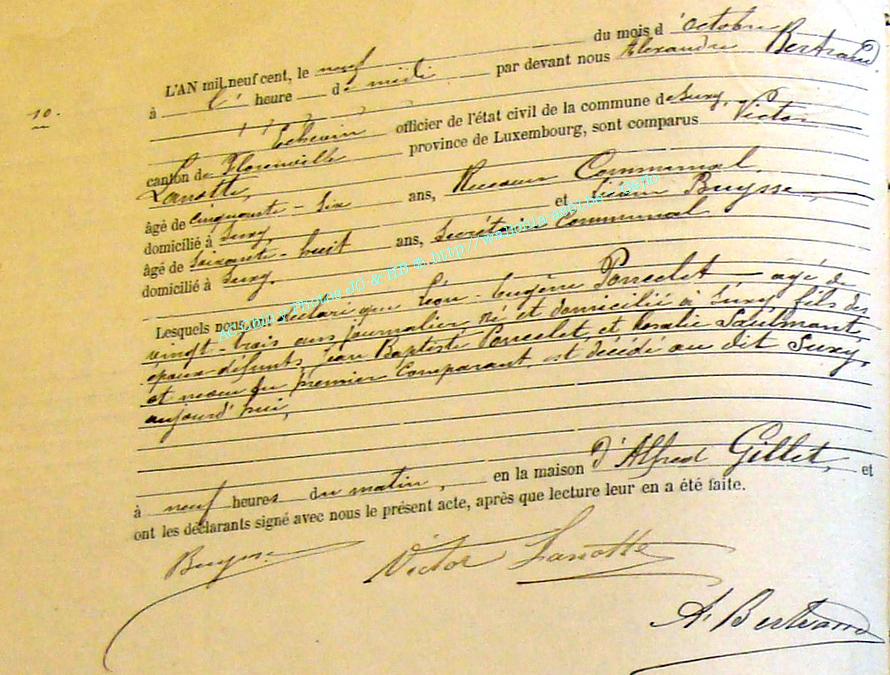 10.
L'AN mil neuf cent, le neuf du mois d'octobre
à l' heure de midi par devant nous Alexandre Bertrand
Echevin officier de l'état civil de la commune de Suxy,
canton de Florenville province de Luxembourg, sont comparus Victor
Lanotte,
âgé de cinquante-six ans, Receveur Communal,
domicilié à Suxy et Buysse,
âgé de soixante-huit ans, Secrétaire Communal
domicilié à Suxy.
Lesquels nous ont déclaré que Léon-Eugène Poncelet âgé de
vingt-trois ans journalier né et domicilié à Suxy fils des
époux défunts Jean Baptiste Poncelet et Rosalie Saulmont,
et neveu du premier Comparant, est décédé au dit Suxy,
aujourd'hui,
à neuf heures du matin, en la maison d'Alfred Gillet, et
ont les déclarants signé avec nous le présent acte, après que lecture leur en a été faite.
Buysse
Victor Lanotte
A. Bertrand